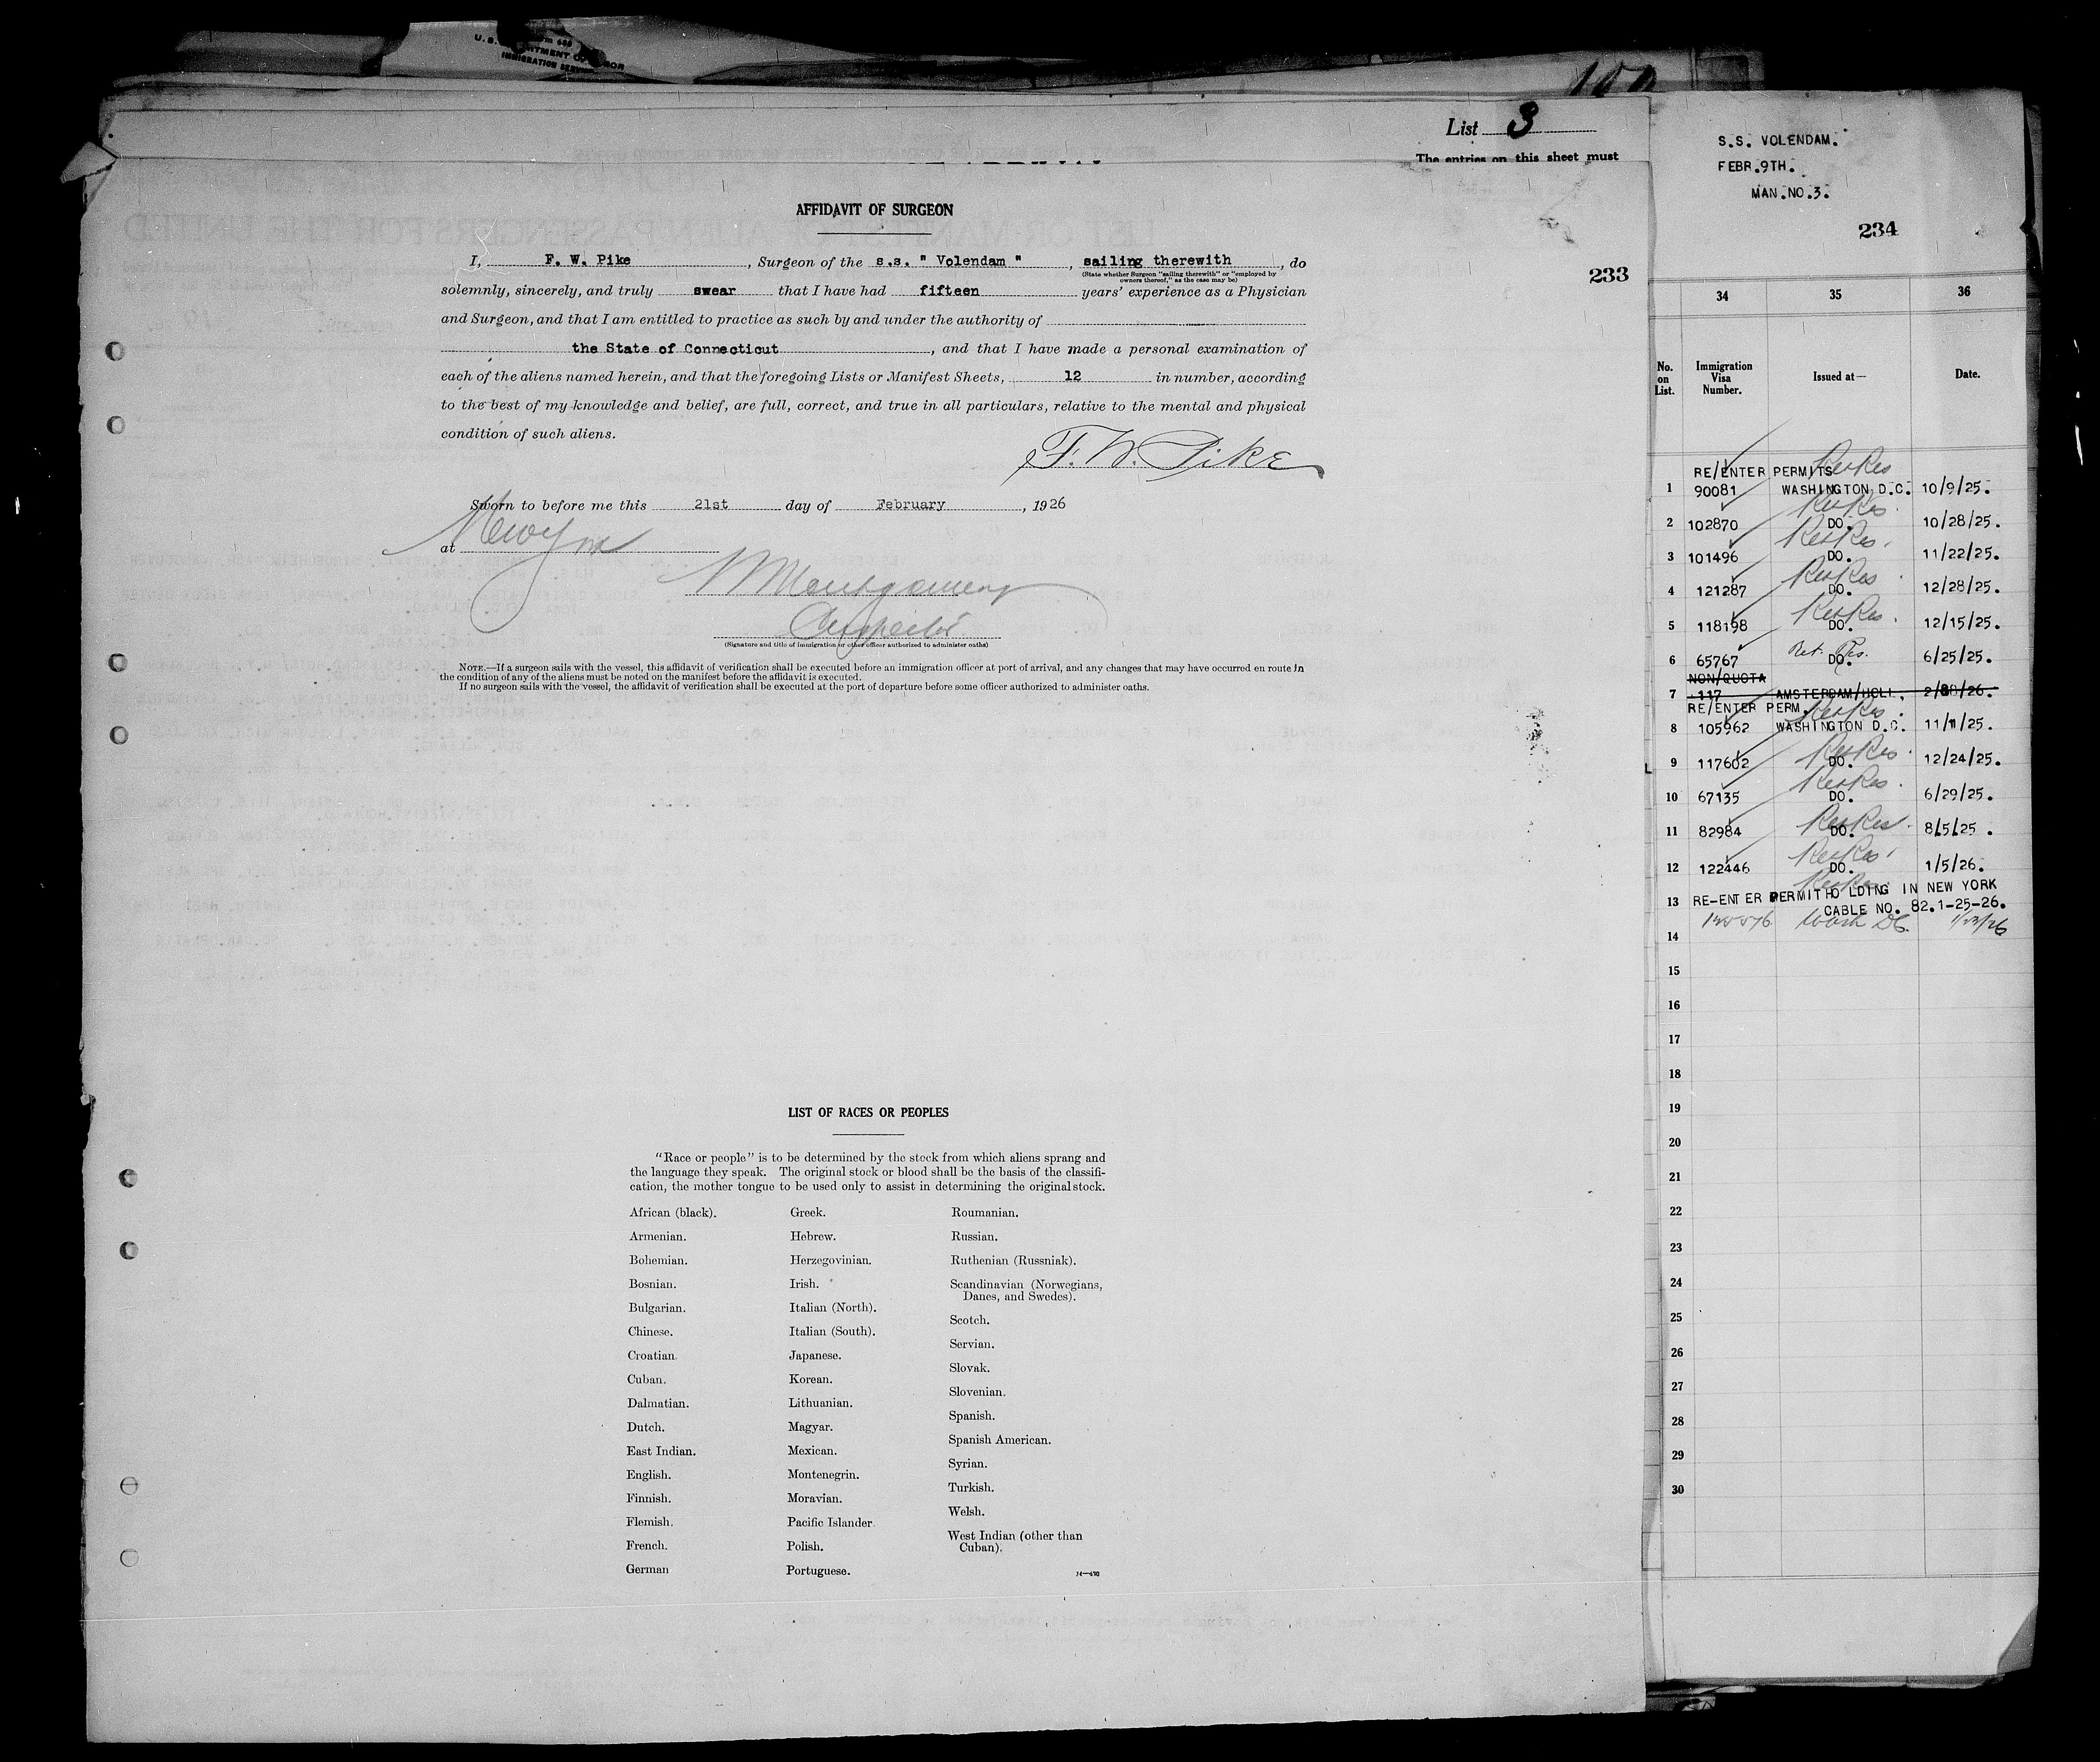 IMMIGRATION SERVICE
List 3
The entries on this sheet must
233
AFFIDAVIT OF SURGEON
I, F. W. Pike, Surgeon of the s.s. " Volendam ", sailing therewith, do
(State whether Surgeon "sailing therewith" or "employed by
owners thereof," as the case may be)
solemnly, sincerely, and truly swear that I have had fifteen years' experience as a Physician
and Surgeon, and that I am entitled to practice as such by and under the authority of
the State of Connecticut, and that I have made a personal examination of
each of the aliens named herein, and that the foregoing Lists or Manifest Sheets, 12 in number, according
to the best of my knowledge and belief, are full, correct, and true in all particulars, relative to the mental and physical
condition of such aliens.
F. W. Pike
Sworn to before me this 21st day of February, 1926
at New York
Montgomery
Inspector
(Signature and title of immigration or other officer authorized to administer oaths)
NOTE.—If a surgeon sails with the vessel, this affidavit of verification shall be executed before an immigration officer at port of arrival, and any changes that may have occurred en route in
the condition of any of the aliens must be noted on the manifest before the affidavit is executed.
If no surgeon sails with the vessel, the affidavit of verification shall be executed at the port of departure before some officer authorized to administer oaths.
LIST OF RACES OR PEOPLES
"Race or people" is to be determined by the stock from which aliens sprang and
the language they speak. The original stock or blood shall be the basis of the classifi-
cation, the mother tongue to be used only to assist in determining the original stock.
African (black).
Armenian.
Bohemian.
Bosnian.
Bulgarian.
Chinese.
Croatian.
Cuban.
Dalmatian.
Dutch.
East Indian.
English.
Finnish.
Flemish.
French.
German
Greek.
Hebrew.
Herzegovinian.
Irish.
Italian (North).
Italian (South).
Japanese.
Korean.
Lithuanian.
Magyar.
Mexican.
Montenegrin.
Moravian.
Pacific Islander.
Polish.
Portuguese.
Roumanian.
Russian.
Ruthenian (Russniak).
Scandinavian (Norwegians,
Danes, and Swedes).
Scotch.
Servian.
Slovak.
Slovenian.
Spanish.
Spanish American.
Syrian.
Turkish.
Welsh.
West Indian (other than
Cuban).
S.S. VOLENDAM.
FEBR.9TH.
MAN.NO.3.
234
34 35 36
No. on List. Immigration Visa Number. Issued at— Date.
RE/ENTER PERMITS Ret Res
1 90081 WASHINGTON D.C. 10/9/25.
Ret Res.
2 102870 DO. 10/28/25.
Ret Res.
3 101496 DO. 11/22/25.
Ret Res
4 121287 DO. 12/28/25.
Ret Res.
5 118198 DO. 12/15/25.
Ret. Res.
6 65767 DO. 6/25/25.
NON/QUOTA
7 117 AMSTERDAM/HOLL. 2/8/26.
RE/ENTER PERM. Ret Res.
8 105962 WASHINGTON D.C. 11/11/25.
Ret Res.
9 117602 DO. 12/24/25.
Ret Res.
10 67135 DO. 6/29/25.
Ret Res.
11 82984 DO. 8/5/25.
Ret Res.
12 122446 DO. 1/5/26.
Ret Res
13 RE-ENTER PERMIT HOLDING IN NEW YORK
CABLE NO. 82.1-25-26.
Wash DC.
14
15
16
17
18
19
20
21
22
23
24
25
26
27
28
29
30